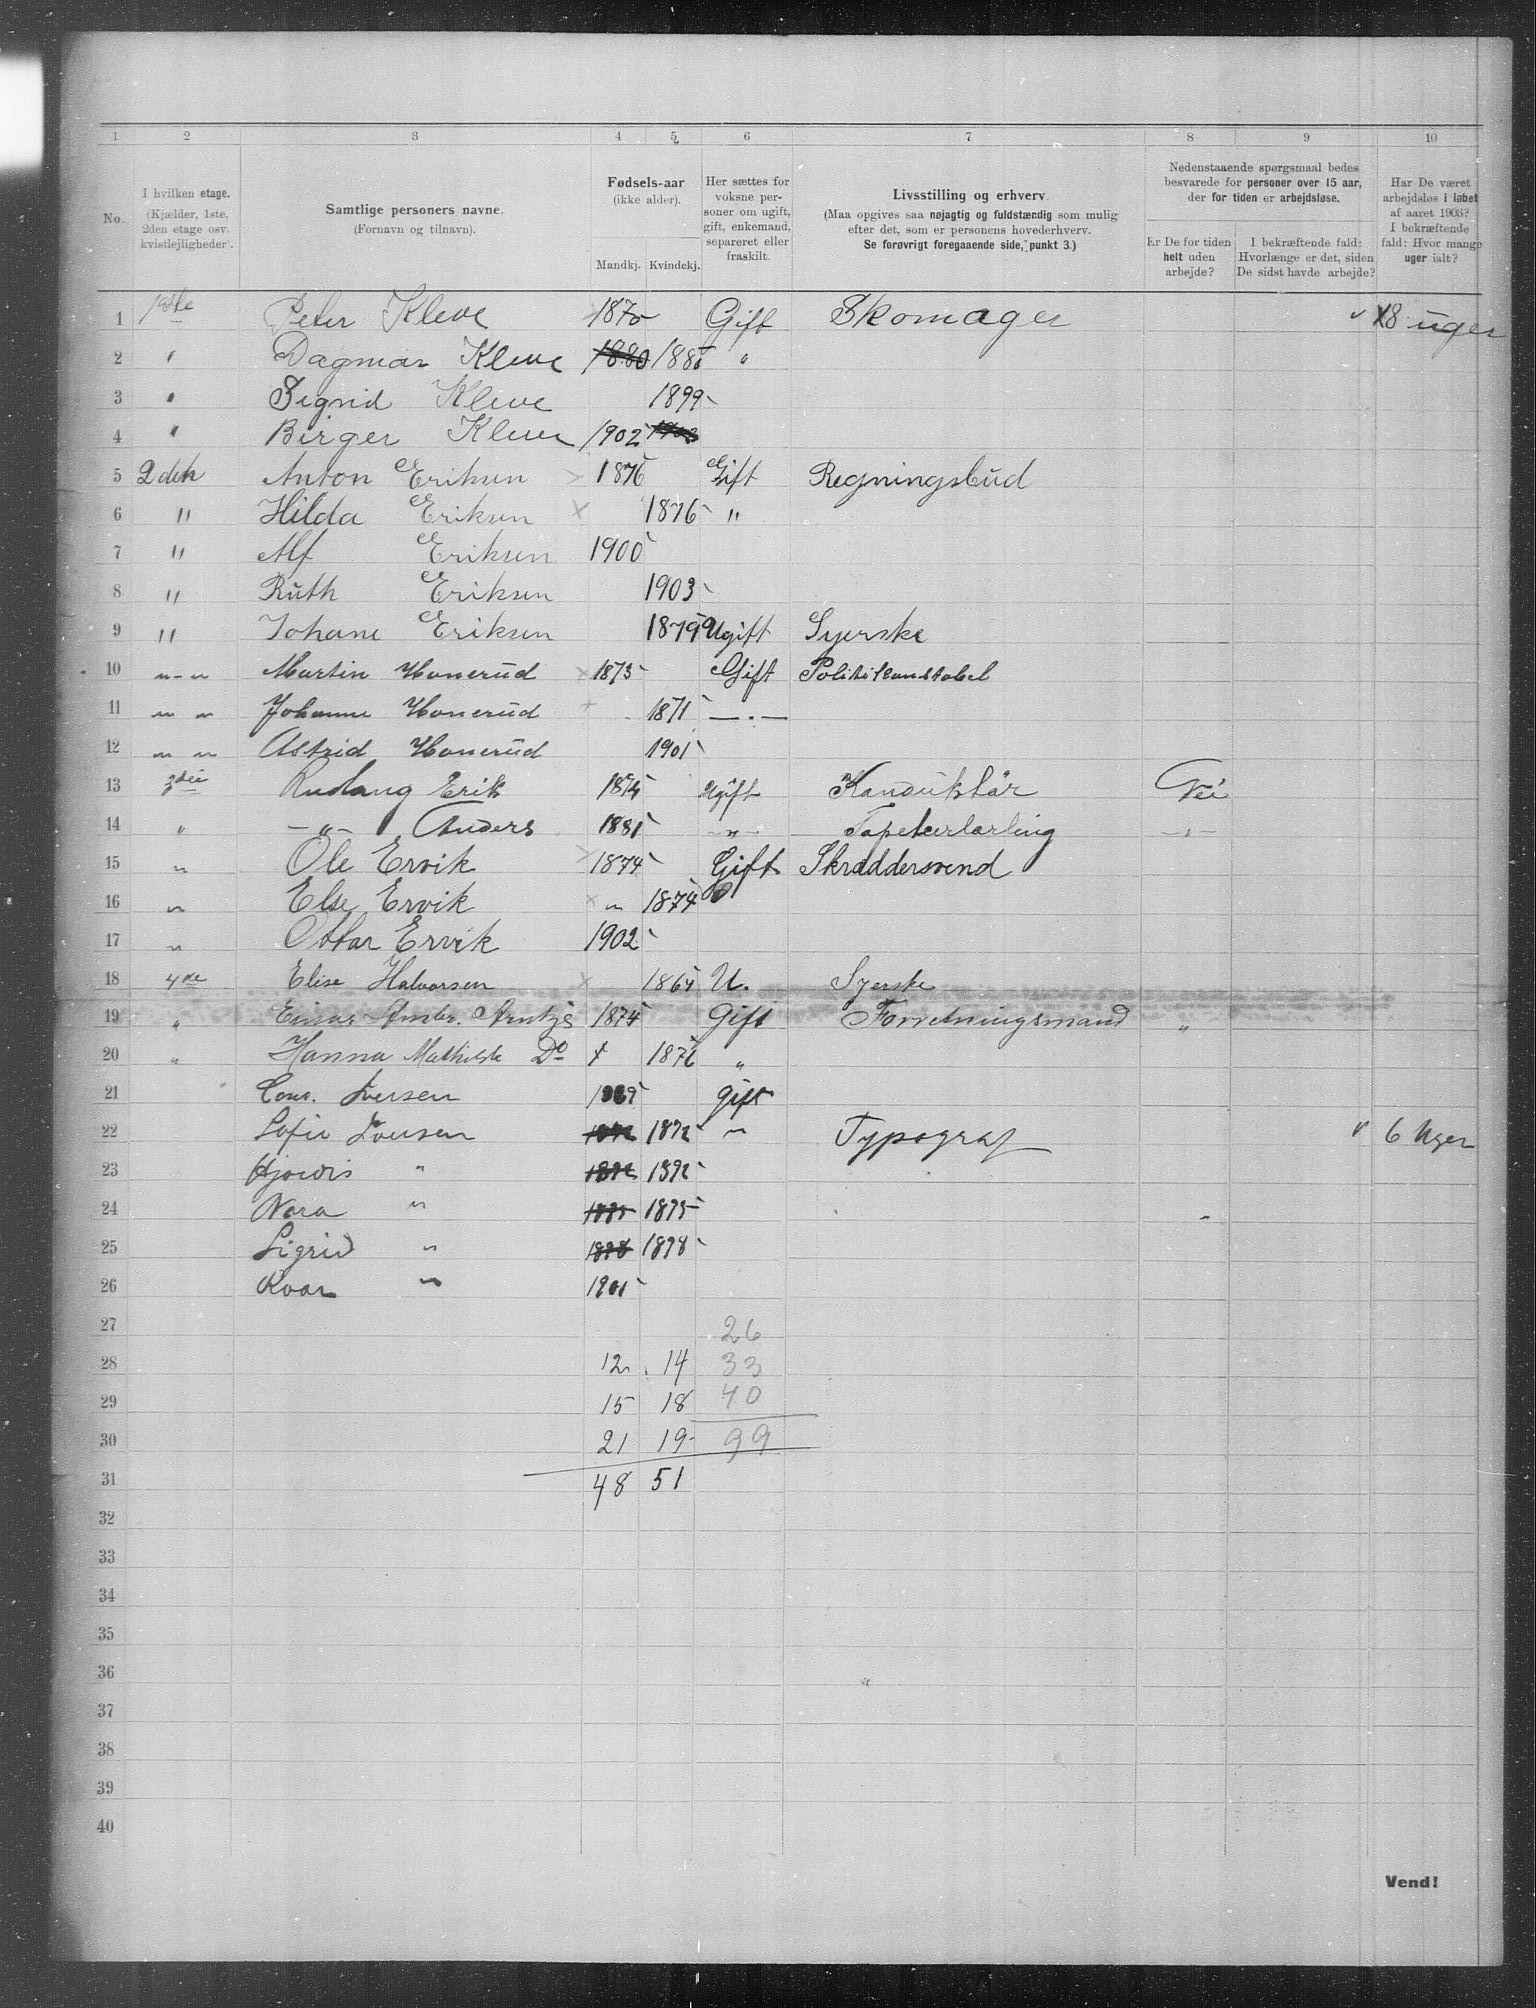 1 2 3 4 5 6 7 8 9 10
No. I hvilken etage. (Kjælder, 1ste, 2den etage osv. kvistlejligheder). Samtlige personers navne. (Fornavn og tilnavn). Fødsels-aar (ikke alder). Mandkj. Kvindekj. Her sættes for voksne personer om ugift, gift, enkemand, separeret eller fraskilt. Livsstilling og erhverv. (Maa opgives saa nøjagtig og fuldstændig som mulig efter det, som er personens hovederhverv. Se forøvrigt foregaaende side, punkt 3.) Nedenstaaende spørgsmaal bedes besvarede for personer over 15 aar, der for tiden er arbejdsløse. Er De for tiden helt uden arbejde? I bekræftende fald: Hvorlænge er det, siden De sidst havde arbejde? Har De været arbejdsløs i løbet af aaret 1903? I bekræftende fald: Hvor mange uger ialt?
1 1ste Peter Kleve 1870 Gift Skomager 18 uger
2 " Dagmar Kleve 1880 188 "
3 " Sigrid Kleve 1899
4 " Birger Kleve 1902 1902
5 2den Anton Eriksen 1876 Gift Regningsbud
6 " Hilda Eriksen 1876 "
7 " Alf Eriksen 1900
8 " Ruth Eriksen 1903
9 " Johane Eriksen 1879 Ugift Syerske
10 " " Martin Honerud 1873 Gift Politikonstabel
11 " " Johanne Honerud 1871 — " —
12 " " Astrid Honerud 1901
13 3die Erik 1874 Ugift Konduktør Nei
14 " — " — Anders 1881 — " — Tapetserlærling — " —
15 " Ole Ervik 1874 Gift Skræddersvend
16 " Else Ervik " 1874
17 " Ottar Ervik 1902
18 4de Elise Halvorsen 1864 U. Syerske
19 " Einar 1874 Gift Forretningsmand "
20 " Hanna Mathilde Do 1876 "
21 Iversen 1869 gift
22 Sofie Iversen 1872 1872 " Typograf 6 Uger
23 Hjørdis " 1892 1892
24 Nora " 1895 1895
25 Sigrid " 1898 1898
26 Roar " 1901
27 26
28 12 14 33
29 15 18 40
30 21 19 99
31 48 51
32
33
34
35
36
37
38
39
40
Vend!